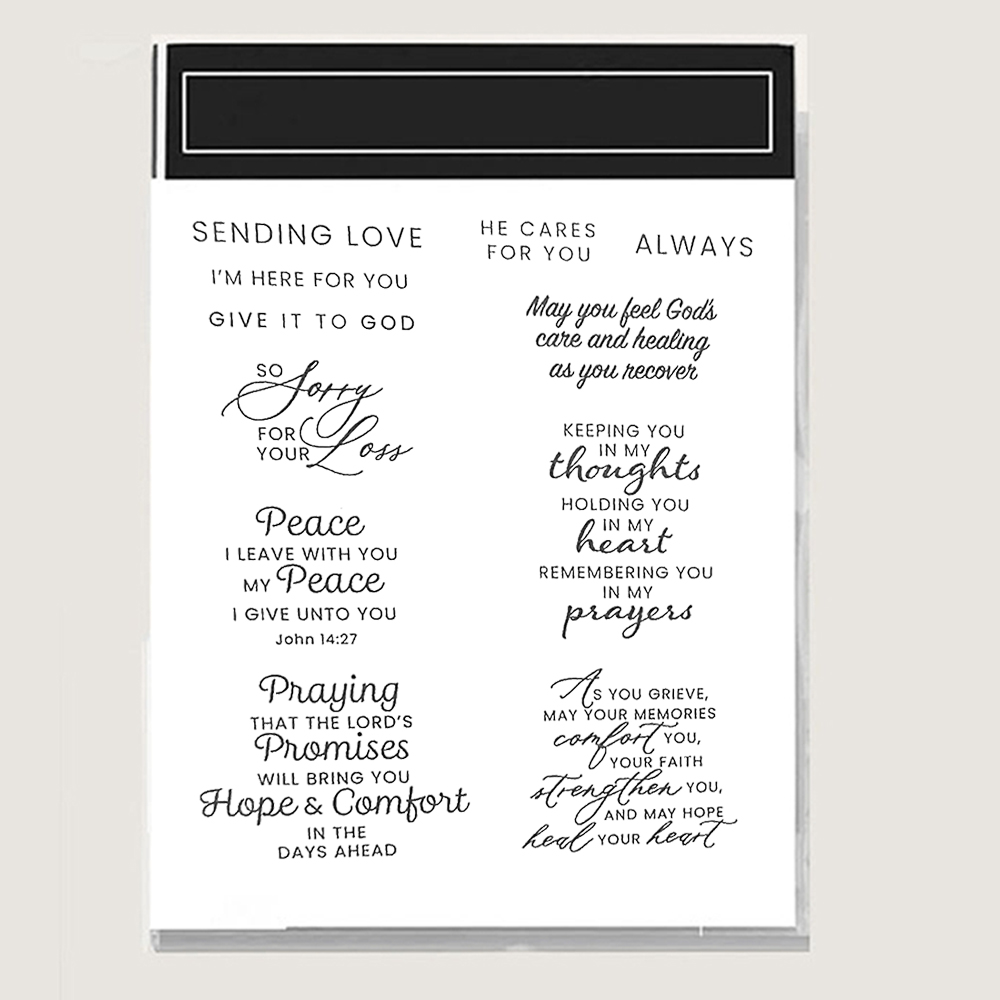 SENDING LOVE
I'M HERE FOR YOU
GIVE IT TO GOD
SO Sorry
FOR
YOUR Loss
Peace
I LEAVE WITH YOU
MY Peace
I GIVE UNTO YOU
John 14:27
Praying
THAT THE LORD'S
Promises
WILL BRING YOU
Hope & Comfort
IN THE
DAYS AHEAD
HE CARES
FOR YOU
ALWAYS
May you feel God's
care and healing
as you recover
KEEPING YOU
IN MY
thoughts
HOLDING YOU
IN MY
heart
REMEMBERING YOU
IN MY
prayers
AS YOU GRIEVE,
MAY YOUR MEMORIES
comfort YOU,
YOUR FAITH
strengthen YOU,
AND MAY HOPE
heal YOUR heart